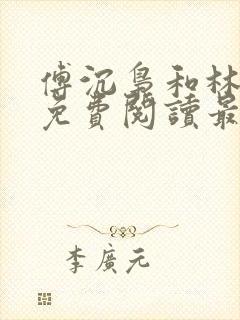 傅沉梟和林
免費閱讀最
李廣元